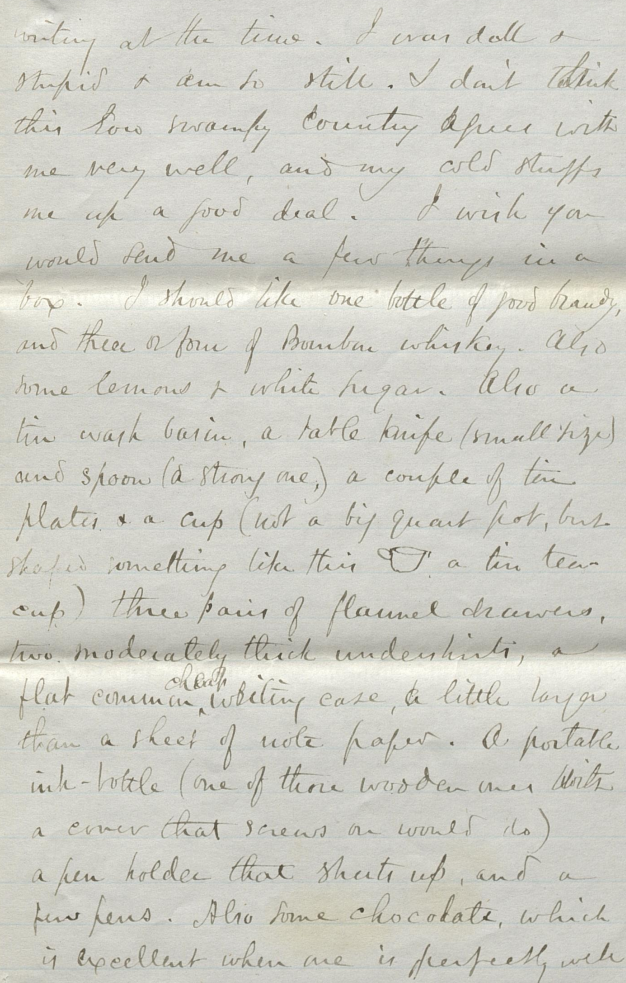 writing at the time. I was dull &
stupid & am so still. I don't think
this low swampy country agrees with
me very well, and my cold stuffs
me up a good deal. I wish you
would send me a few things in a
box. I should like one bottle of good brandy,
and three or four of Bourbon whiskey. Also
some lemons & white sugar. Also a
tin wash basin, a table knife (small size)
and spoon (a strong one,) a couple of tin
plates & a cup (not a big quart pot, but
shaped something like this a tin tea
cup) three pairs of flannel drawers,
two moderately thick undershirts, a
flat common, cheap writing case, a little larger
than a sheet of note paper. A portable
ink-bottle (one of those wooden ones with
a cover that screws on would do)
a pen holder that shuts up, and a
few pens. Also some chocolate, which
is excellent when one is perfectly well